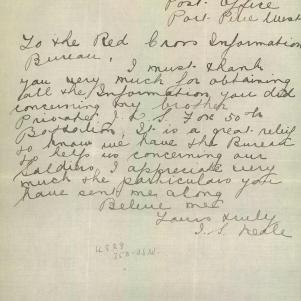 Post Office
Port Pirie West
To the Red Cross Information
Bureau,
I must thank
you very much for obtaining
all the Information you did
concerning my brother
Private J. L. S. Fox 50th
Battalion, It is a great relief
to know we have the Bureau
to help us concerning our
Soldiers, I appreciate very
much the particulars you
have sent me along
Believe me
Yours truly